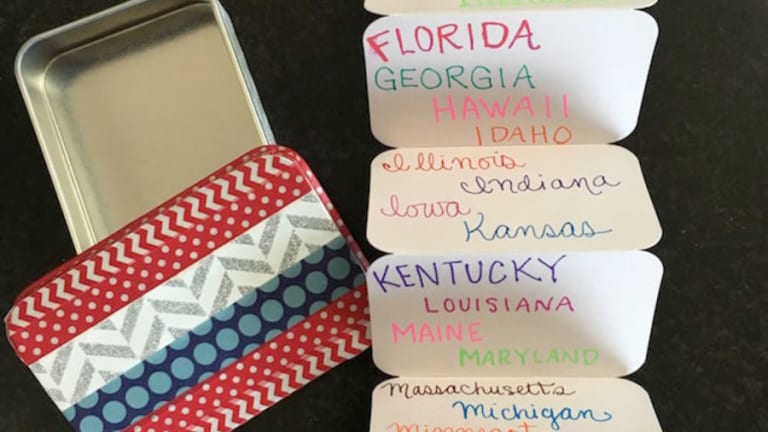 FLORIDA
GEORGIA
HAWAII
IDAHO
Illinois
Indiana
Iowa
Kansas
KENTUCKY
LOUISIANA
MAINE
MARYLAND
MASSACHUSETTS
Michigan